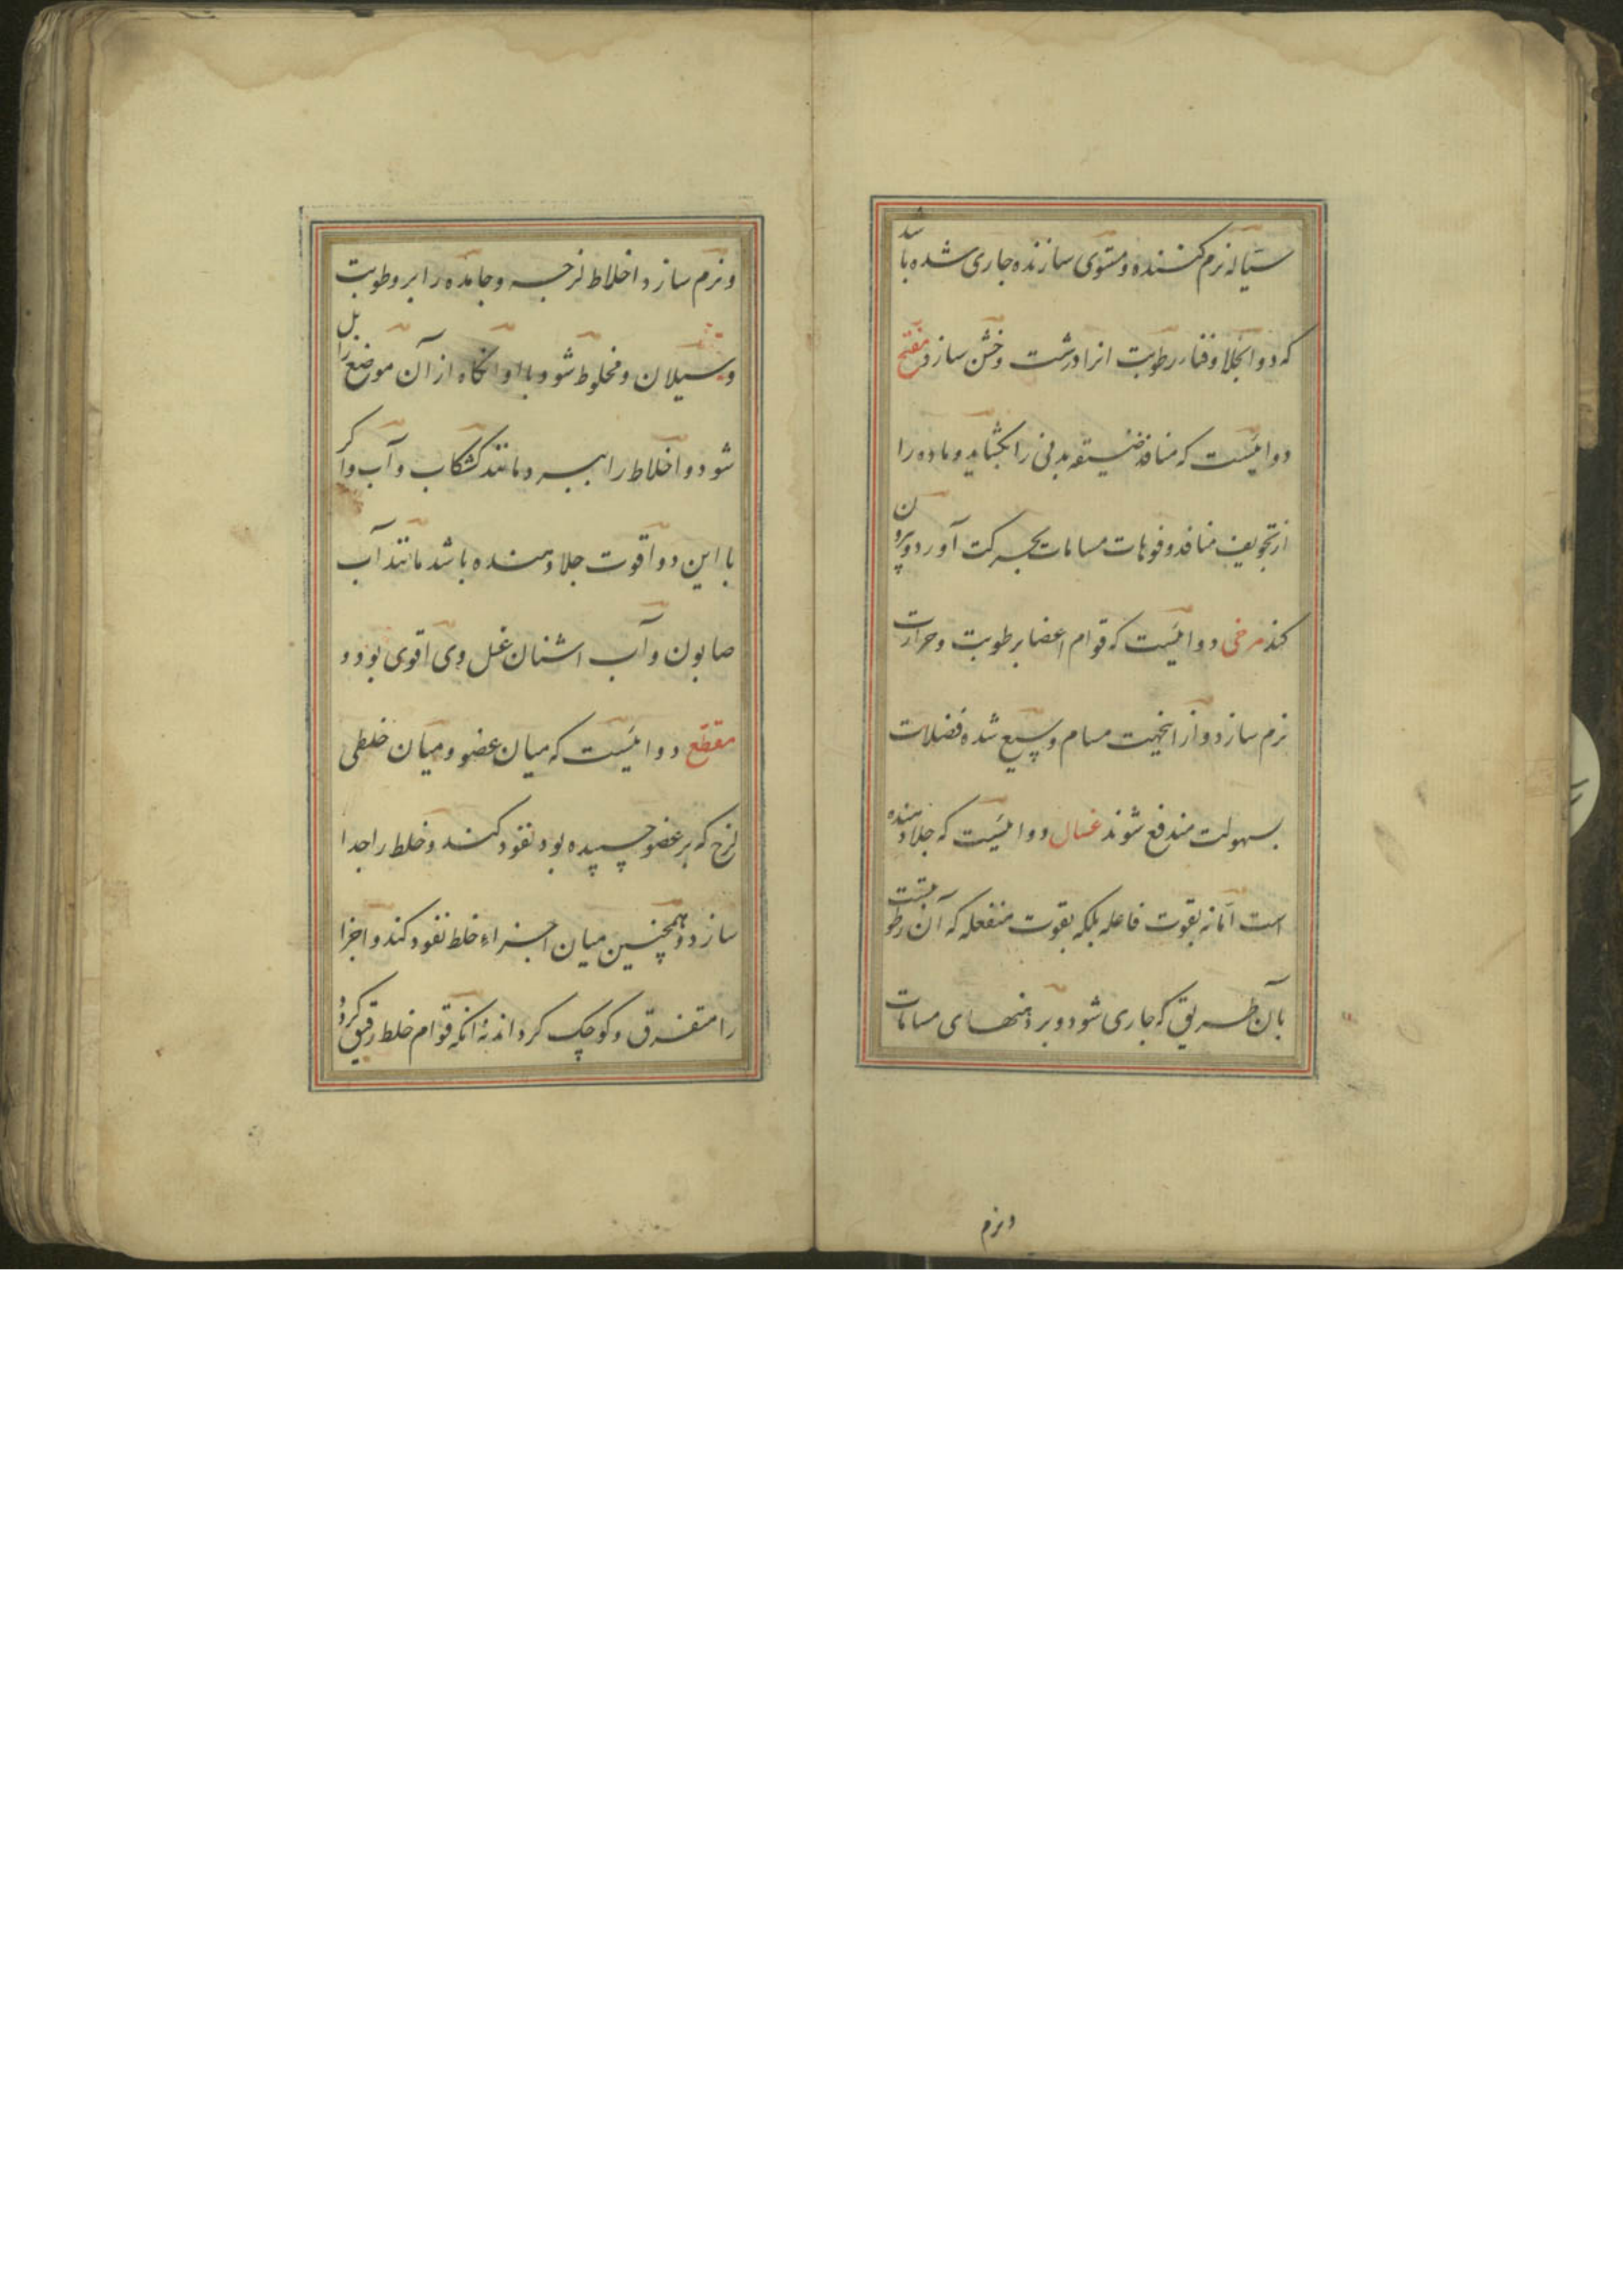 سیاله نرم کننده و مستوی سازنده جاری شده باشد
که دوا بجلا و فناء رطوبت انرا درشت و خشن سازد مفتح
دوائیست که منافذ ضیقه بدنی را بکشاید و ماده را
از تجویف منافذ و فوهات مسامات بحرکت آورد و بیرون
کند مرخی دوائیست که قوام اعضا برطوبت و حرارت
نرم سازد و از اینجهت مسام وسیع شده فضلات
بسهولت مندفع شوند غسال دوائیست که جلا دهنده
است اما نه بقوت فاعله بلکه بقوت منفعله که آن رطوبتست
بآن طریق که جاری شود و بر دهنهای مسامات
ونرم
و نرم سازد اخلاط لزجه و جامده را برطوبت
و سیلان و مخلوط شود با او انکاه از آن موضع زایل
شود و اخلاط را ببرد مانند کشکاب و آب و اگر
با این دوا قوت جلا دهنده باشد مانند آب
صابون و آب اشنان غسل وی اقوی بود و
مقطع دوائیست که میان عضو و میان خلطی
لزج که بر عضو چسپیده بود نفود کند و خلط را جدا
سازد و همچنین میان اجزاء خلط نفود کند و اجزا
را متفرق و کوچک کرداند نه انکه قوام خلط رقیق کردد